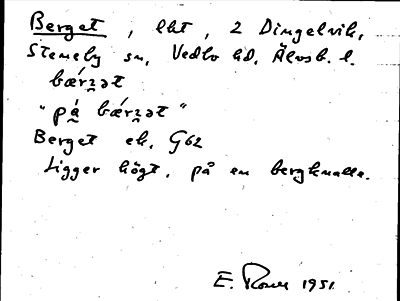 Berget, lht, 2 Dingelvik,
Steneby sn, Vedbo hd, Älvsb. l.
bǽrz̥ət
"pǻ bǽrz̥ət"
Berget ek. G62
Ligger högt, på en bergknalle.
E. 1951